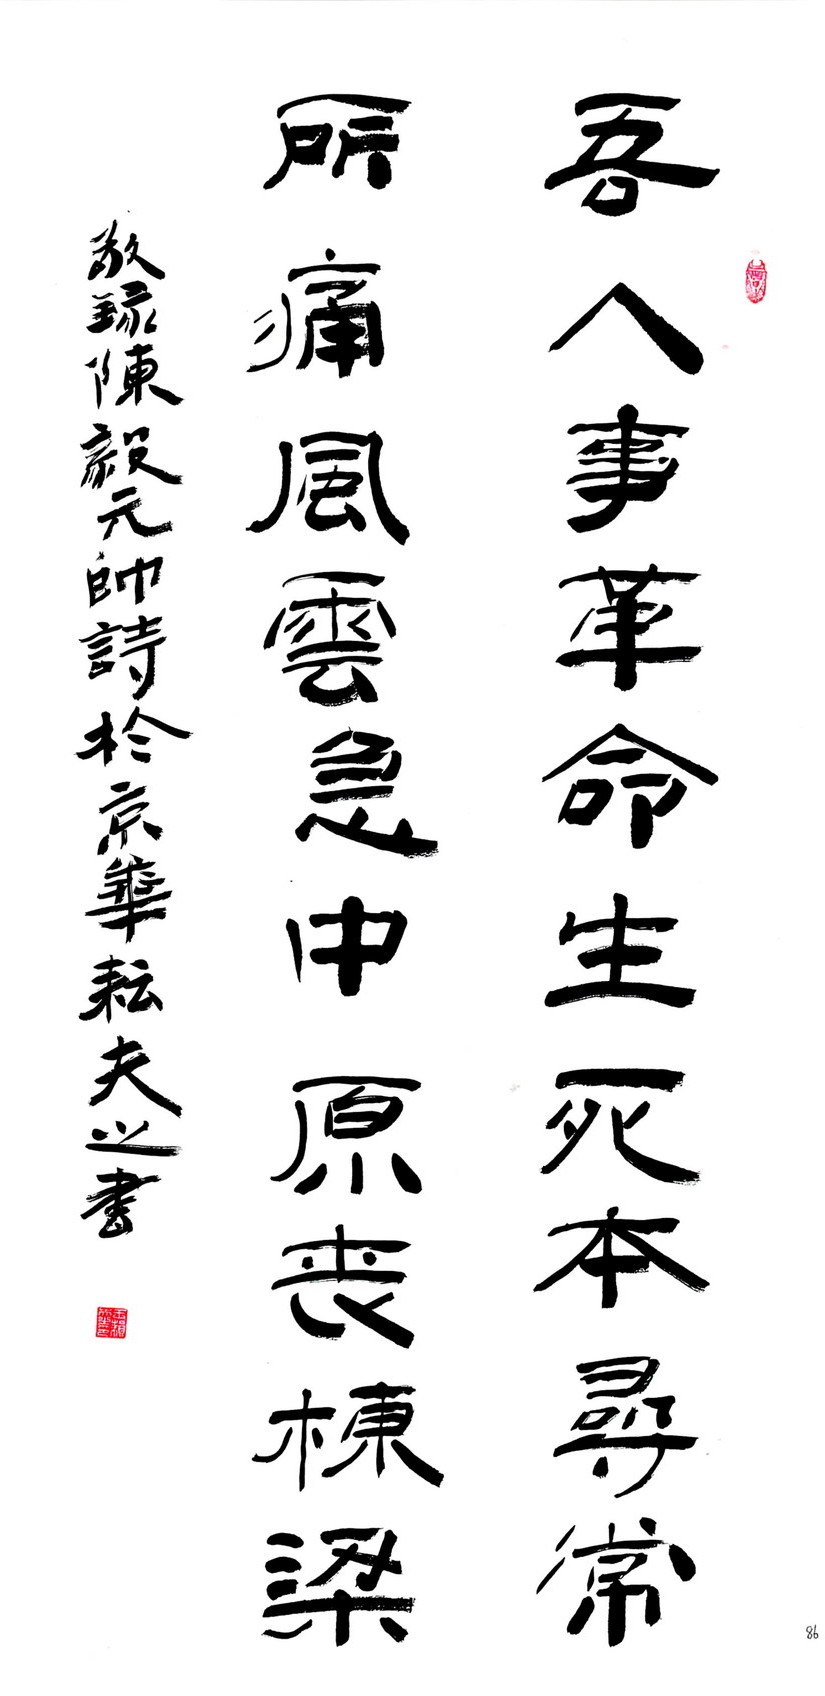 吾人事革命生死本尋常
所痛風雲急中原喪棟梁
敬録陳毅元帥詩於京華耘夫之書
86